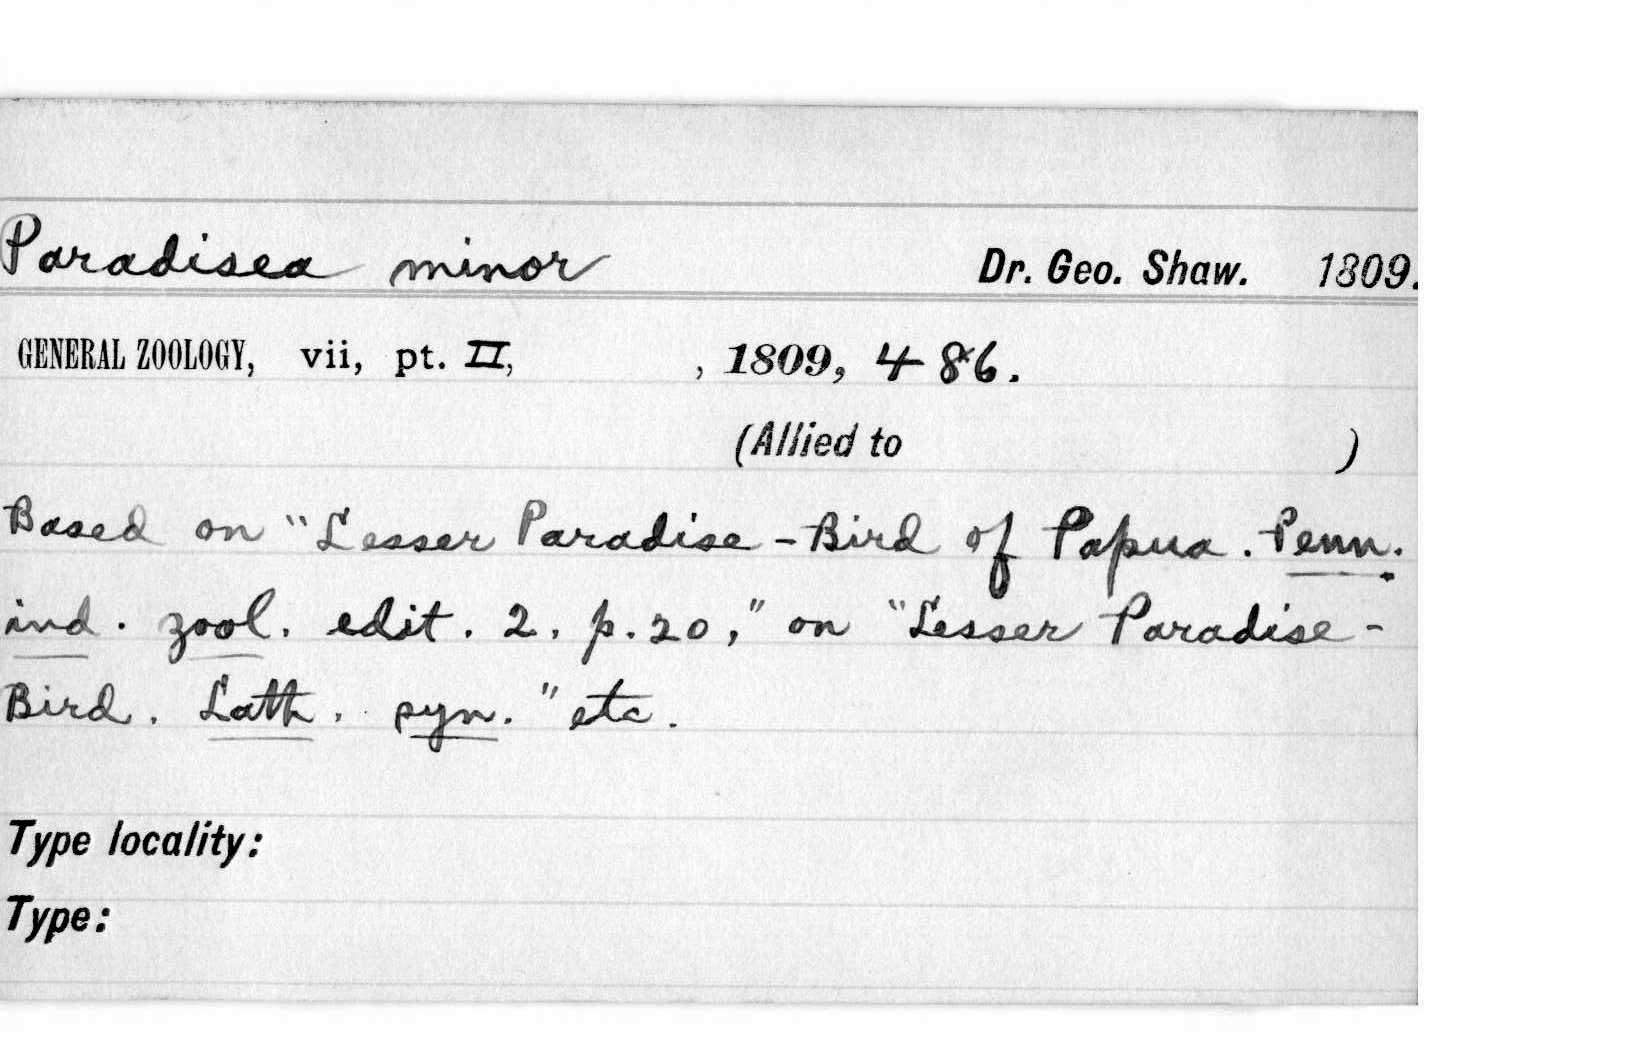 Paradisea minor Dr. Geo. Shaw. 1809.
GENERAL ZOOLOGY, vii, pt. II, , 1809, 486.
(Allied to )
Based on "Lesser Paradise-Bird of Papua. Penn.
ind. zool. edit. 2. p. 20," on "Lesser Paradise-
Bird. Lath. syn." etc.
Type locality:
Type: